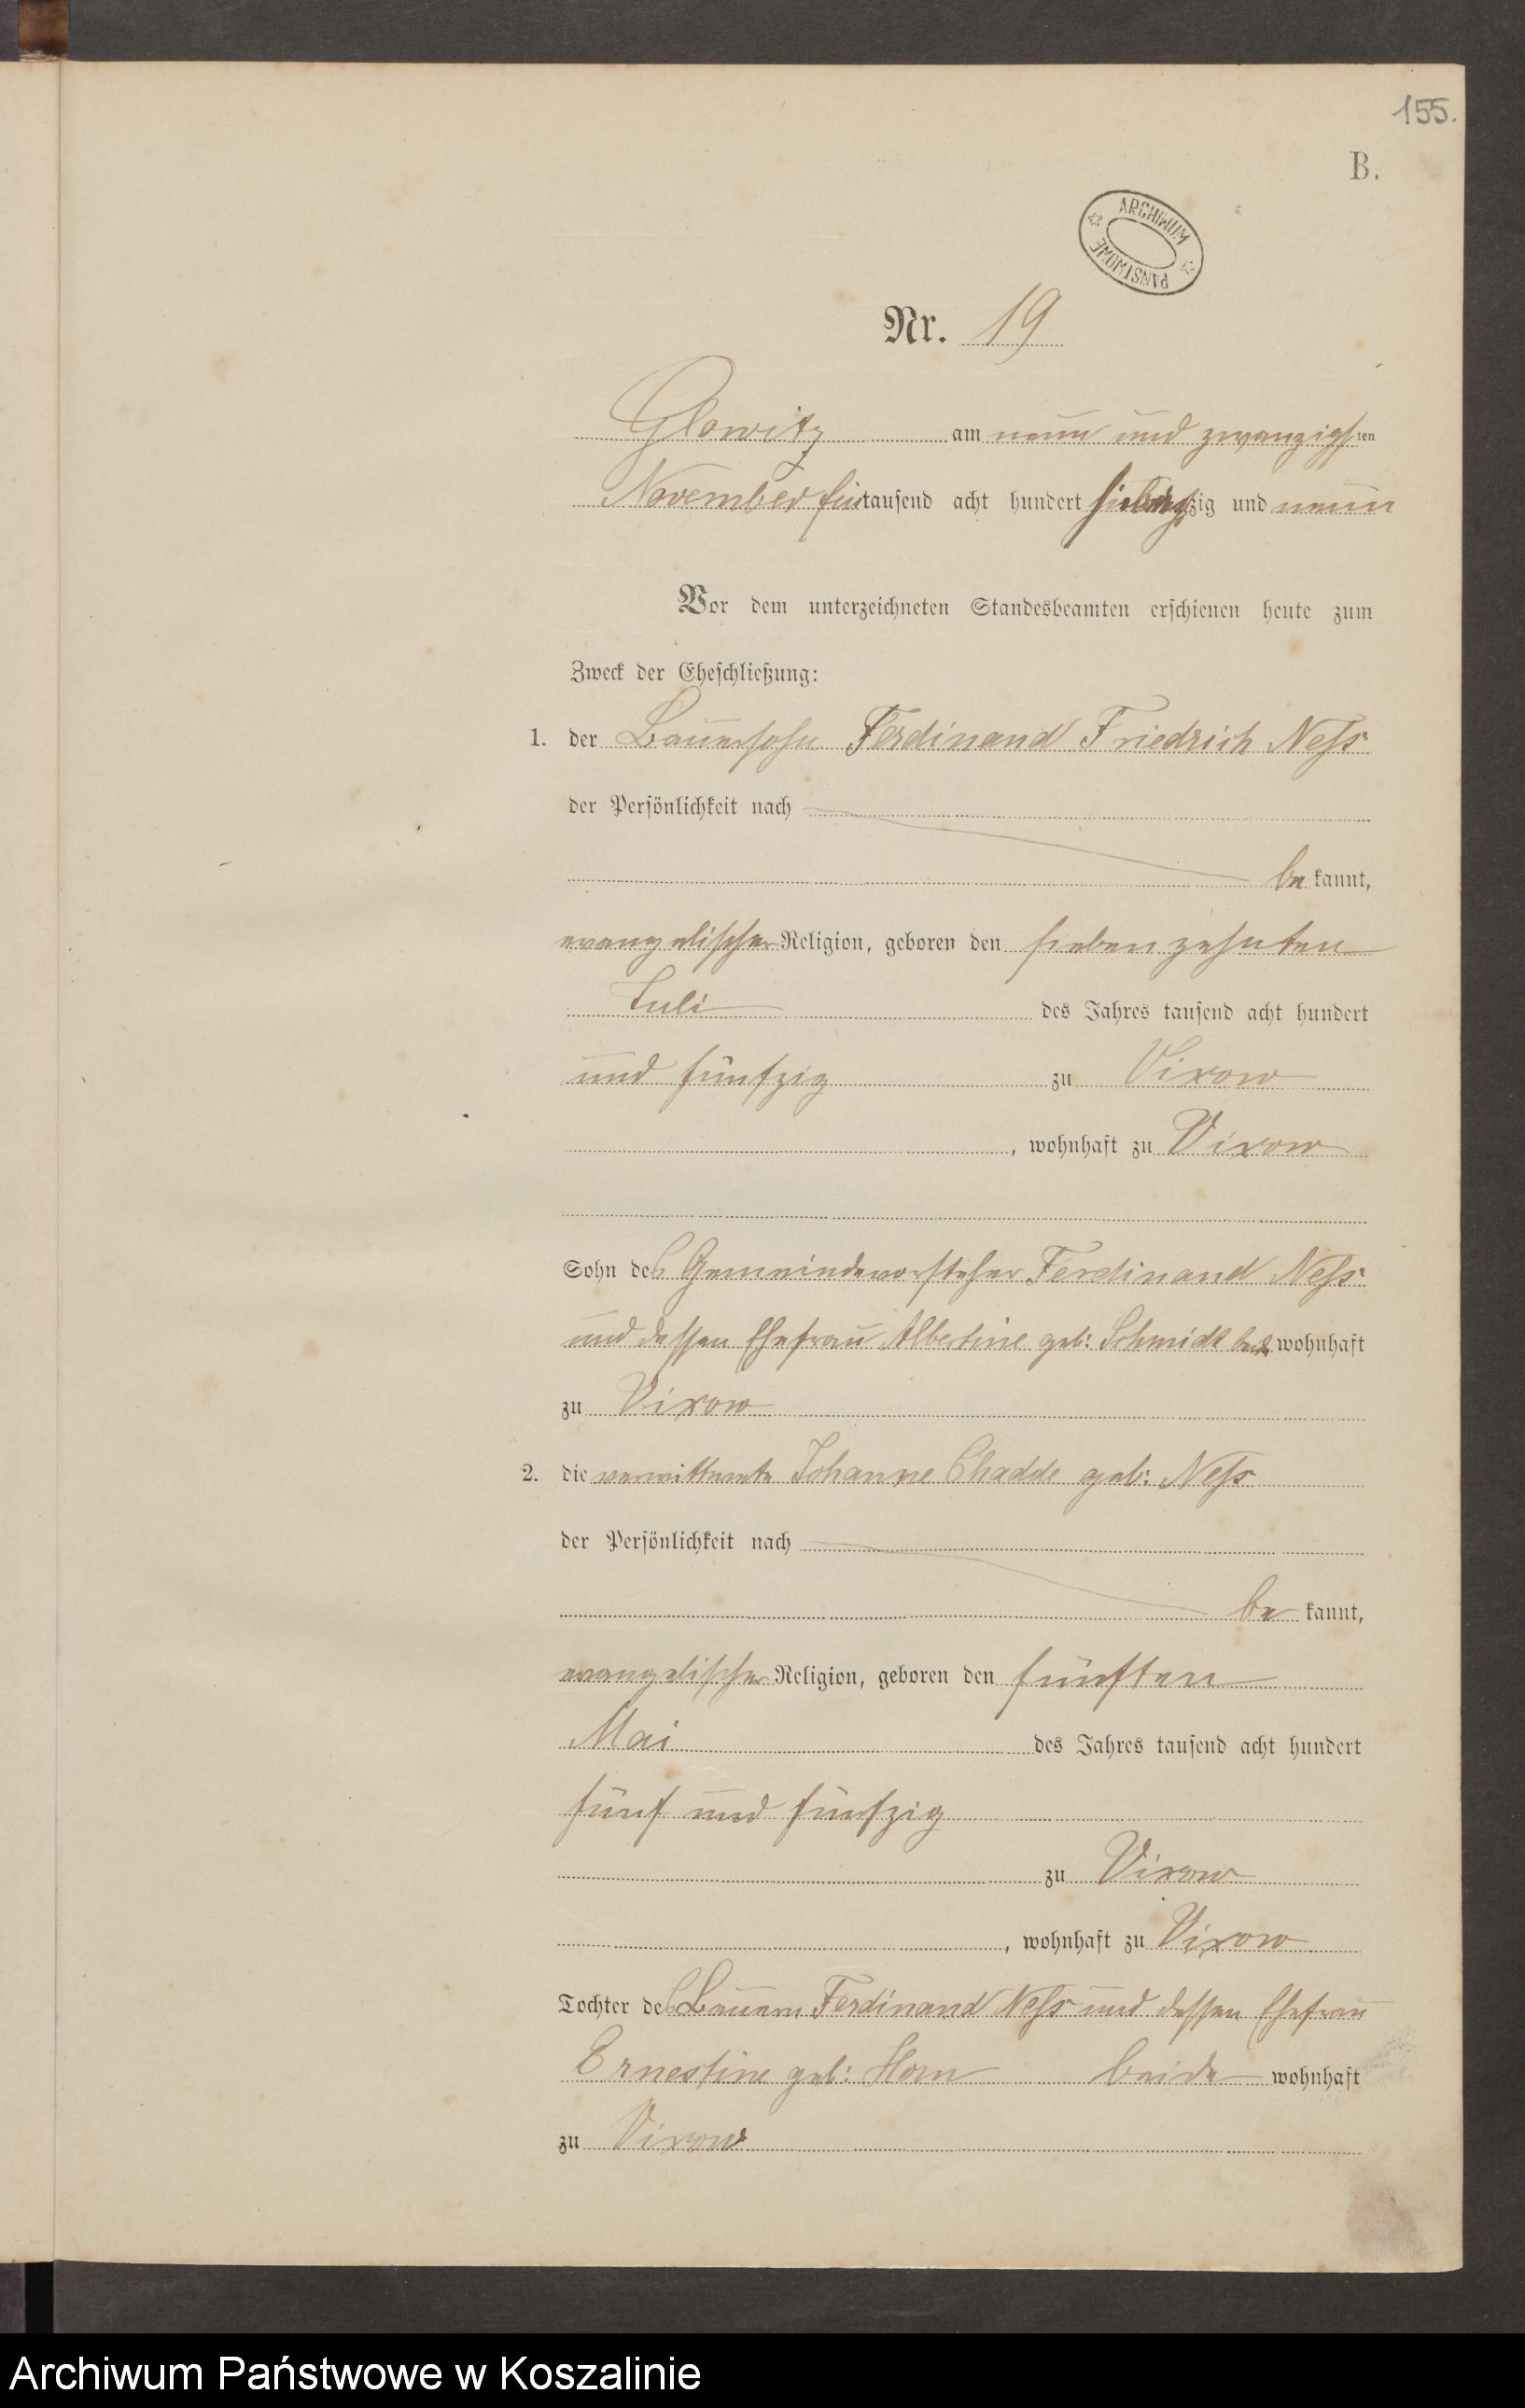 155.
B.
ARCHIWUM
PAŃSTWOWE
Nr. 19
Glowitz am neun und zwanzigsten
November ein tausend acht hundert siebenzig und neun
Vor dem unterzeichneten Standesbeamten erschienen heute zum
Zweck der Eheschließung:
1. der Bauersohn Ferdinand Friedrich Neß
der Persönlichkeit nach
be kannt,
evangelischer Religion, geboren den siebenzehnten
Juli des Jahres tausend acht hundert
und fünfzig zu Vixow
, wohnhaft zu Vixow
Sohn des Gemeindevorsteher Ferdinand Neß
und dessen Ehefrau Albertine geb: Schmidt wohnhaft
zu Vixow
2. die verwittwete Johanne Chadde geb: Neß
der Persönlichkeit nach
be kannt,
evangelischer Religion, geboren den fünften
Mai des Jahres tausend acht hundert
fünf und fünfzig
zu Vixow
, wohnhaft zu Vixow
Tochter des Bauern Ferdinand Neß und dessen Ehefrau
Ernestine geb: Horn beide wohnhaft
zu Vixow
Archiwum Państwowe w Koszalinie